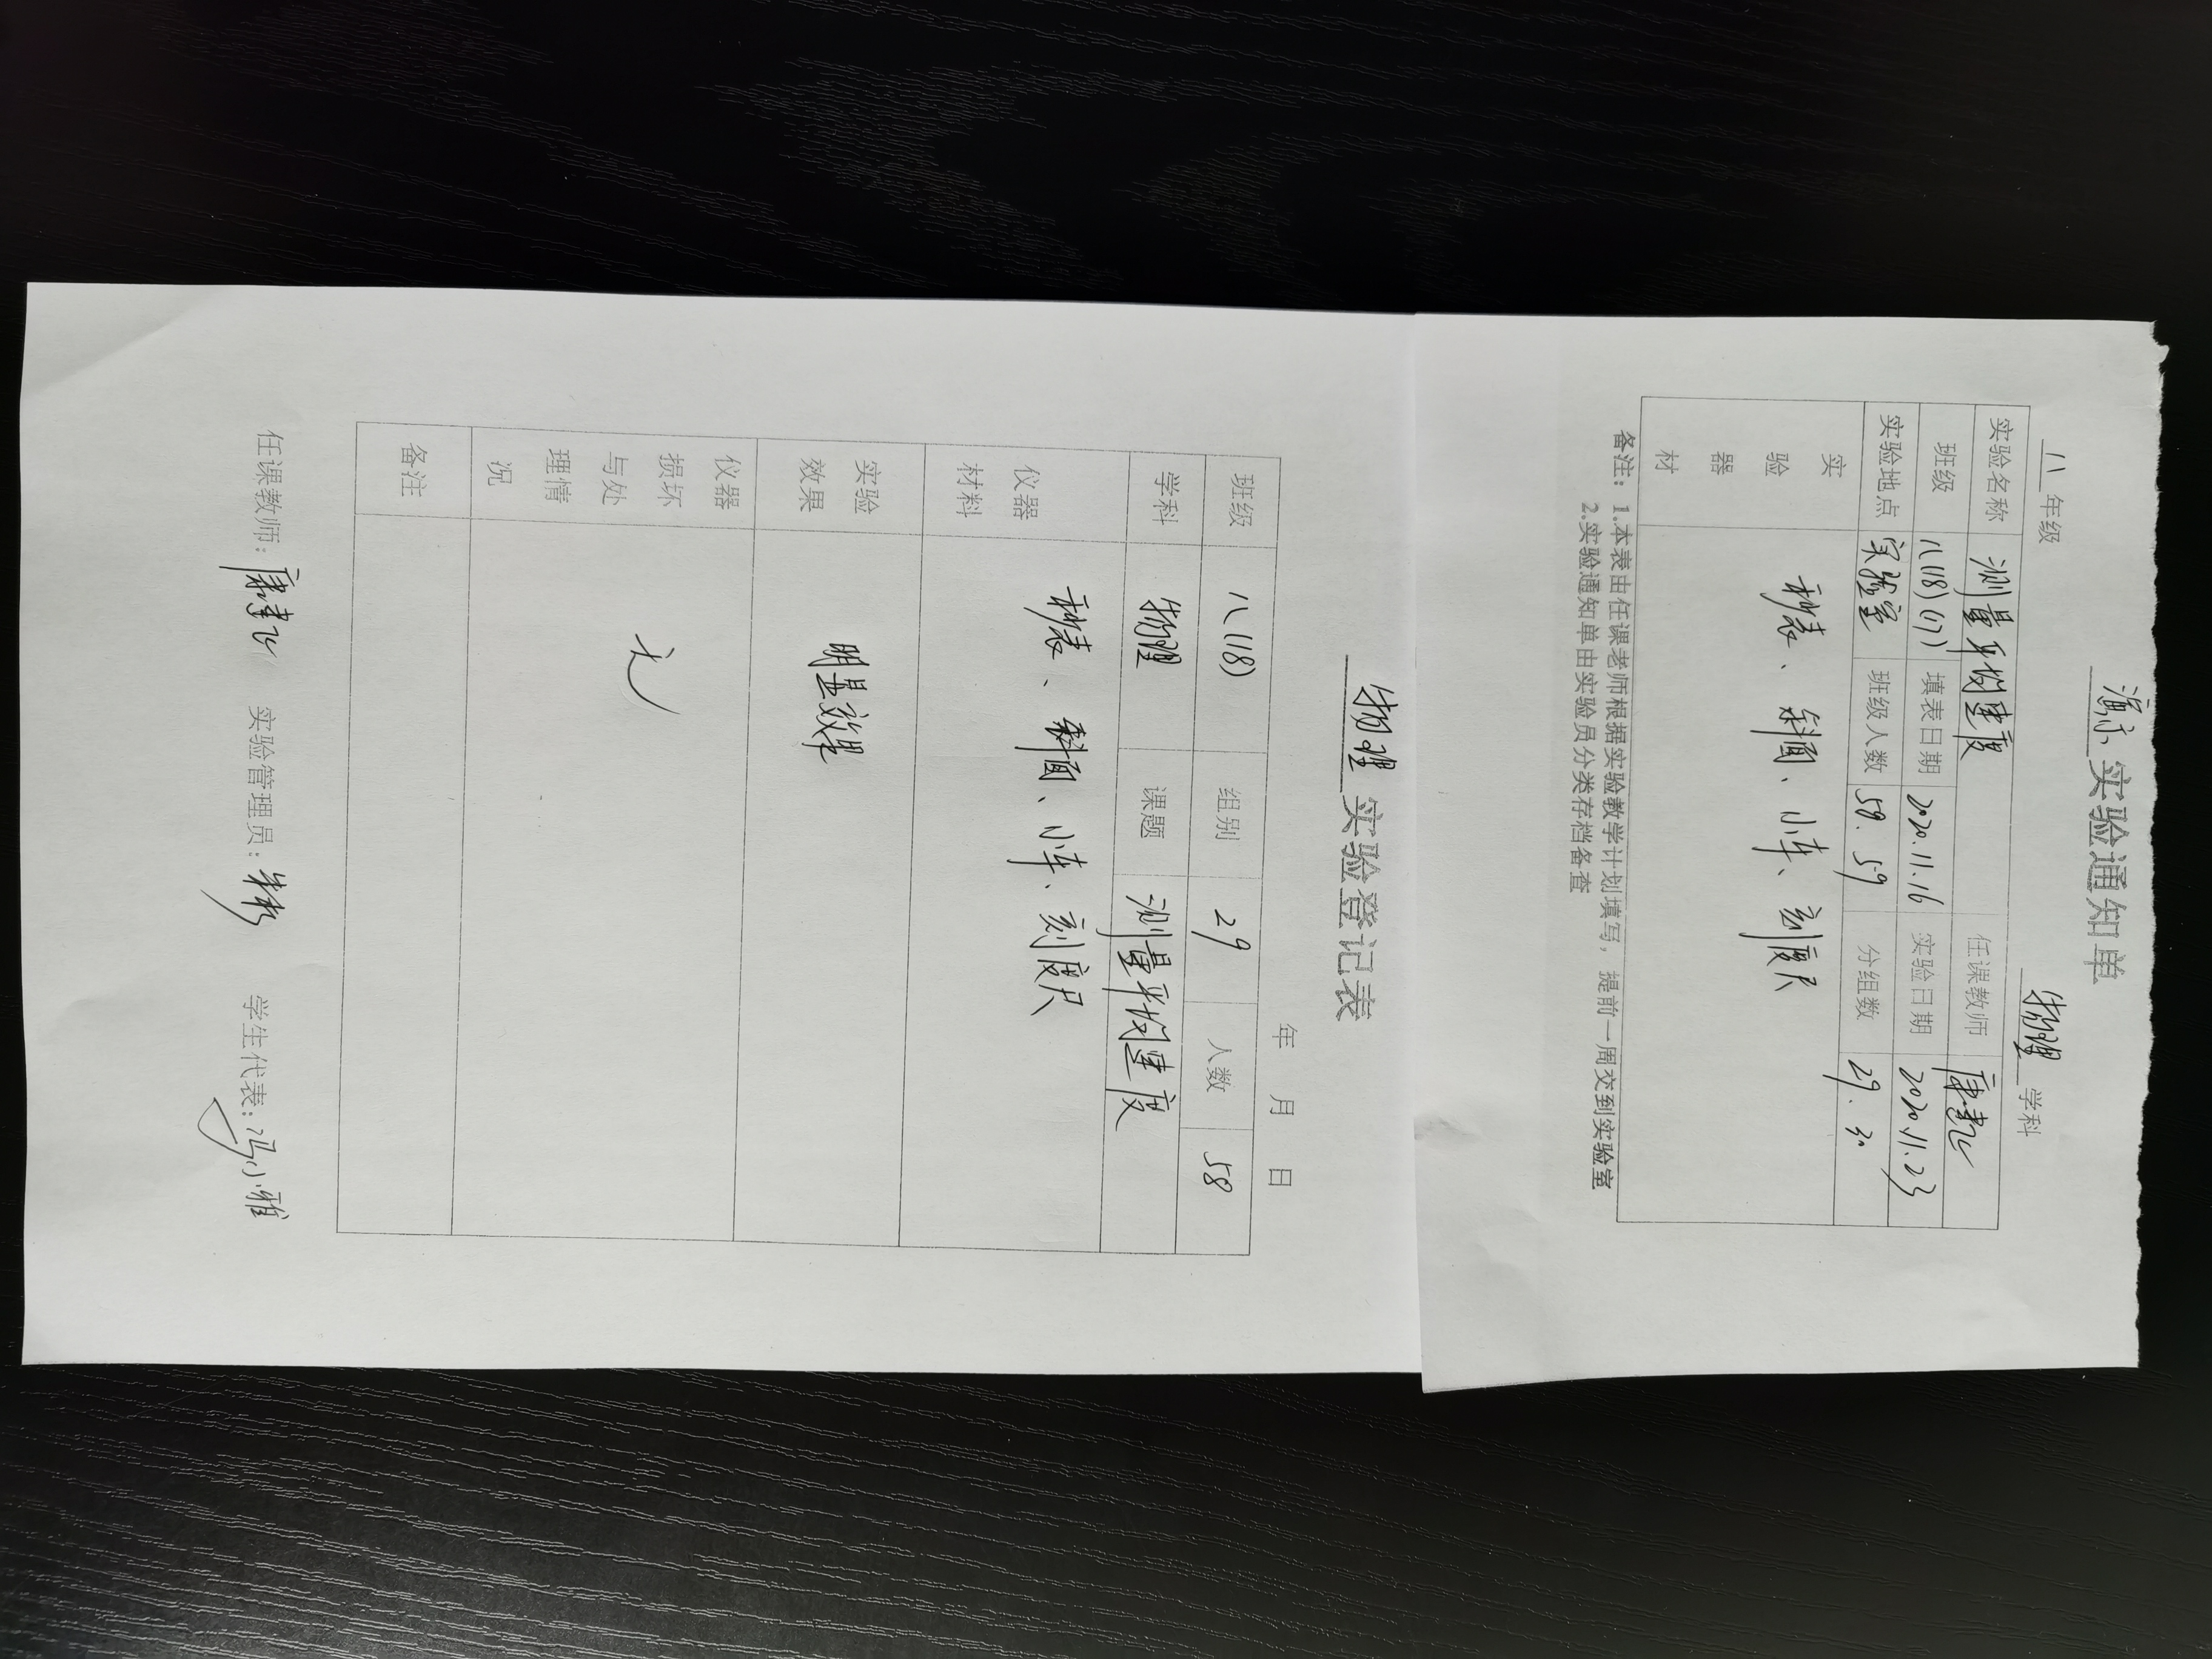 演示实验通知单
八年级 物理学科
实验名称 测量平均速度 任课教师 康建化
班级 八(18)(17) 填表日期 2020.11.16 实验日期 2020.11.23
实验地点 实验室 班级人数 58. 59 分组数 29. 30
实验器材 秒表、斜面、小车、刻度尺
备注：1.本表由任课老师根据实验教学计划填写，提前一周交到实验室
2.实验通知单由实验员分类存档备查
物理实验登记表
年 月 日
班级 八(18) 组别 29 人数 58
学科 物理 课题 测量平均速度
仪器材料 秒表、斜面、小车、刻度尺
实验效果 明显效果
仪器损坏与处理情况 无
备注
任课教师：康建化 实验管理员： 学生代表：冯小雅